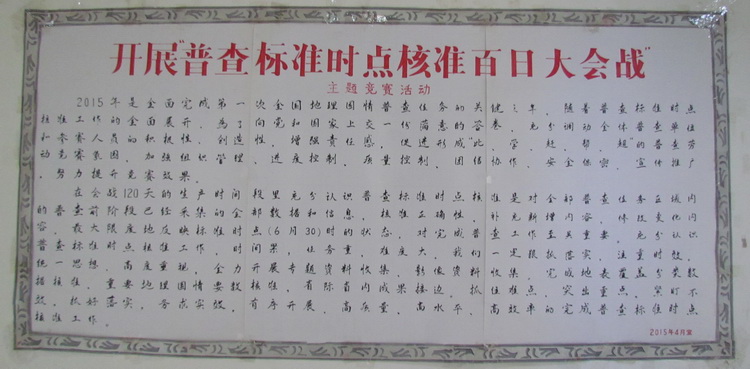 开展“普查标准时点核准百日大会战”
主题竞赛活动
2015年是全面完成第一次全国地理国情普查任务的关键之年，随着普查标准时点
核准工作的全面展开，为了向党和国家上交一份满意的答卷，充分调动全体普查单位
和参赛人员的积极性、创造性，增强责任感，促进形成“比、学、赶、帮、超”的普查劳
动竞赛氛围，加强组织管理、进度控制、质量控制、团结协作、安全保密、宣传推广
，努力提升竞赛效果。
在会战120天的生产时间段里充分认识普查标准时点核准是对全部普查任务区域内
的普查前阶段已经采集的全部数据和信息，核准正确性，补充新增内容，修改变化内
容，最大限度地反映标准时点(6月30)时的状态，对完成普查工作至关重要，充分认识
普查标准时点核准工作，时间紧，任务重，难度大，我们一定狠抓落实，注重时效，
统一思想，高度重视，全力开展专题资料收集、影像资料收集，完成地表覆盖分类数
据核准，重要地理国情要数核准，省际省内成果接边，抓住难点，突出重点，紧盯不
放，抓好落实，务求实效，有序开展，高质量、高水平、高效率的完成普查标准时点
核准工作。
2015年4月